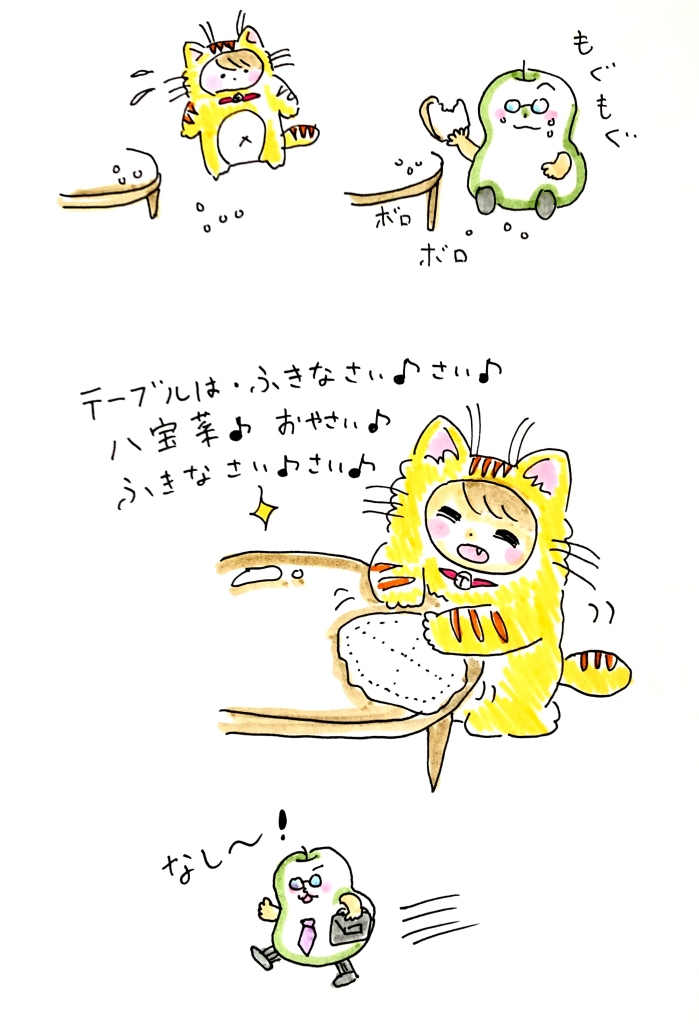 もぐもぐ
ボロ
ボロ
テーブルは・ふきなさい♪さい♪
八宝菜♪ おやさい♪
ふきなさい♪さい♪
なし〜!